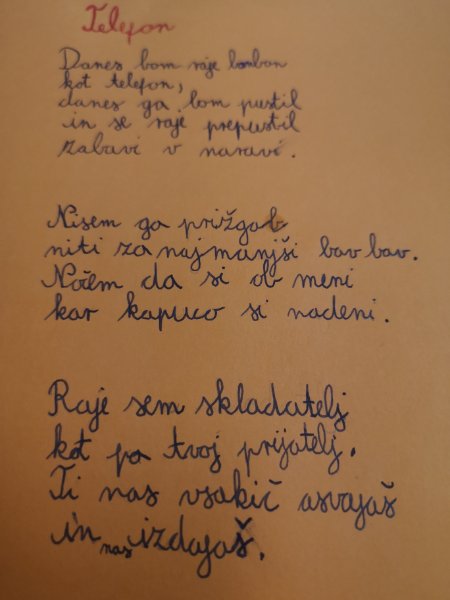 Telefon
Danes bom raje bonbon
kot telefon,
danes ga bom pustil
in se raje prepustil
zabavi v naravi.
Nisem ga prižgal
niti za najmanjši bav bav.
Nočem da si ob meni
kar kapuco si nadeni.
Raje sem skladatelj
kot pa tvoj prijatelj.
Ti nas vsakič osvajaš
in nas izdajaš.